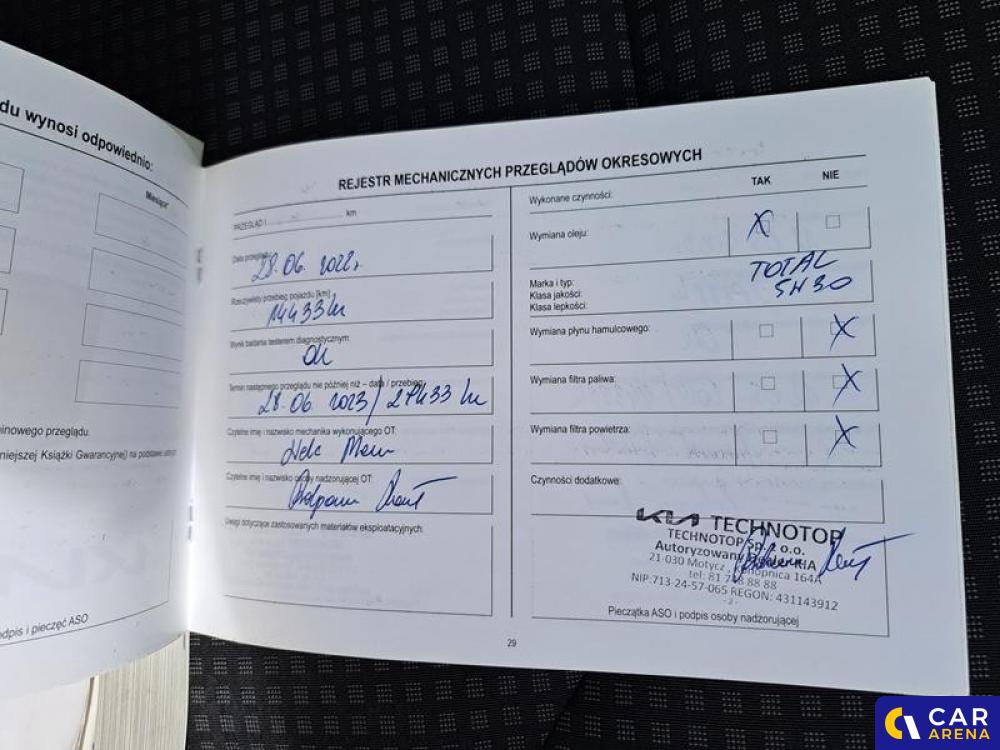 du wynosi odpowiednio:
Miesiące*
inowego przeglądu.
niejszej Książki Gwarancyjnej) na podstawie
dpis i pieczęć ASO
REJESTR MECHANICZNYCH PRZEGLĄDÓW OKRESOWYCH
PRZEGLĄD I km
Data przeglądu:
28.06. 2022r.
Rzeczywisty przebieg pojazdu [km]:
14433 km
Wynik badania testerem diagnostycznym:
OK
Termin następnego przeglądu nie później niż – data / przebieg:
28.06 2023 / 29433 km
Czytelne imię i nazwisko mechanika wykonującego OT:
Czytelne imię i nazwisko osoby nadzorującej OT:
Uwagi dotyczące zastosowanych materiałów eksploatacyjnych:
Wykonane czynności: TAK NIE
Wymiana oleju: X
Marka i typ: TOTAL
Klasa jakości: 5W30
Klasa lepkości:
Wymiana płynu hamulcowego: X
Wymiana filtra paliwa: X
Wymiana filtra powietrza: X
Czynności dodatkowe:
KIA TECHNOTOP
TECHNOTOP Sp. z o.o.
Autoryzowany Dealer KIA
21-030 Motycz, Konopnica 164A
tel: 81 748 88 88
NIP:713-24-57-065 REGON: 431143912
- 2 -
Pieczątka ASO i podpis osoby nadzorującej
29
CAR
ARENA